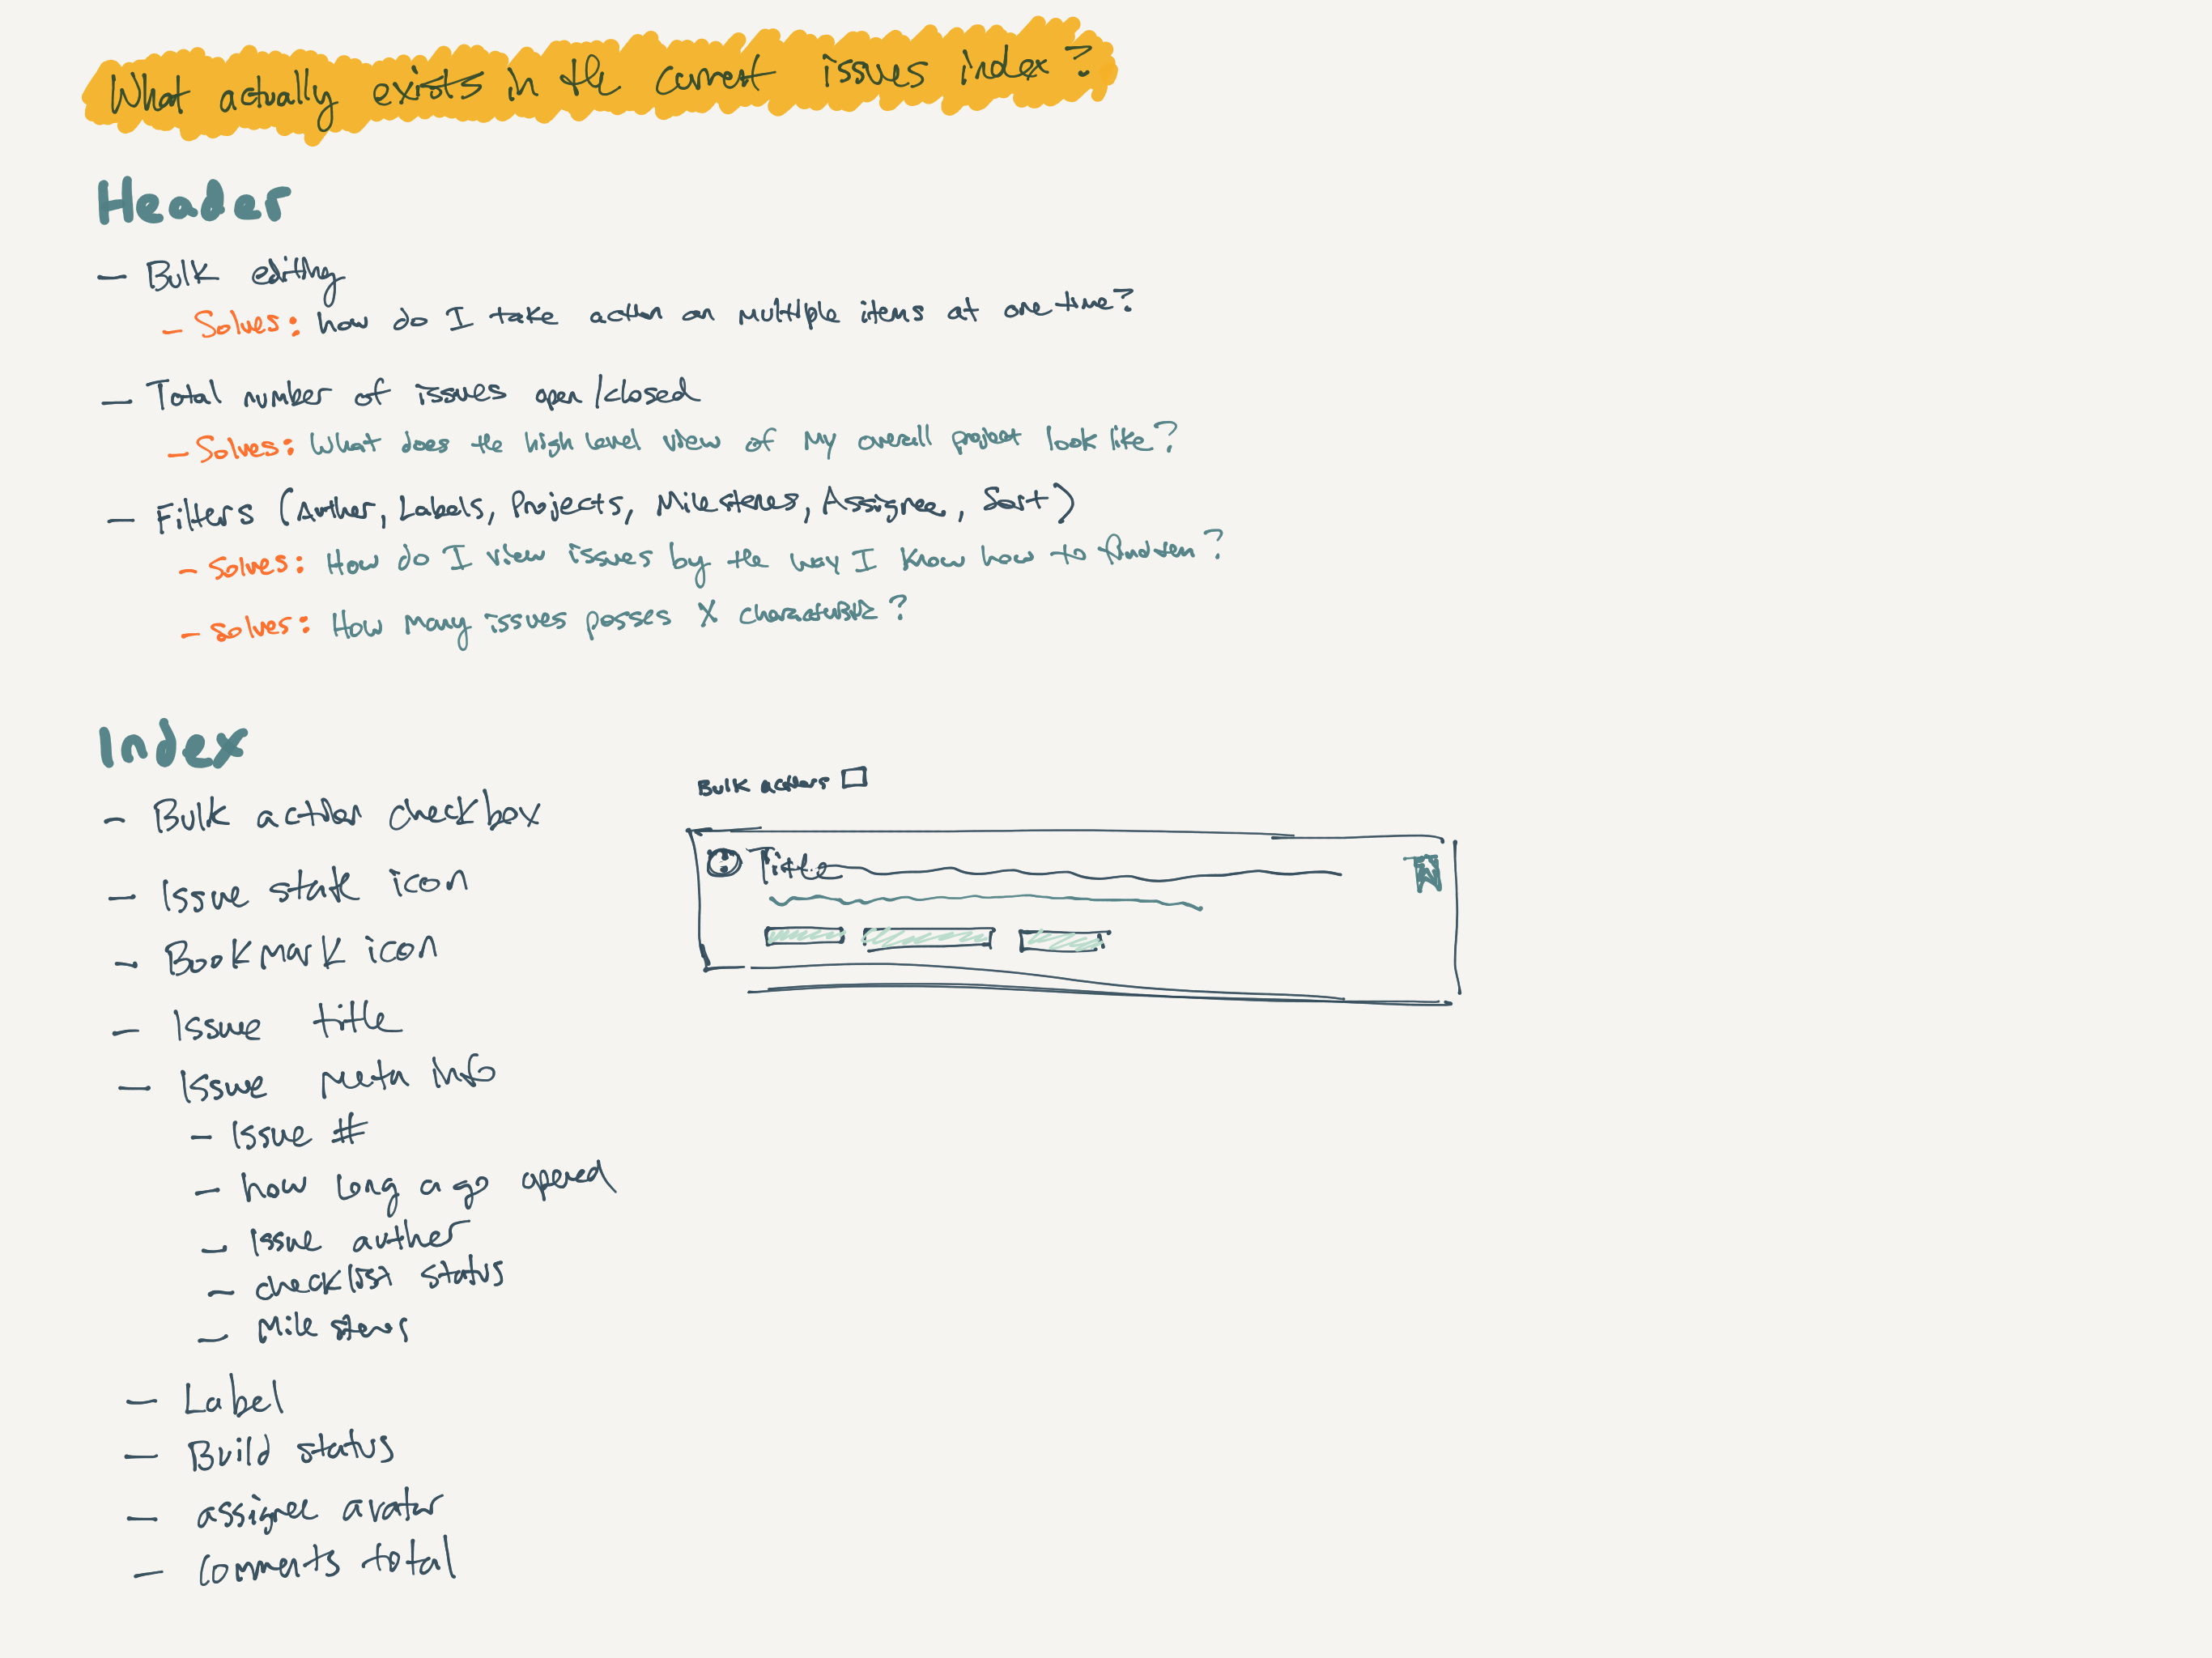 What actually exists in the current issues index?
Header
- Bulk editing
- Solves: how do I take action on multiple items at one time?
- Total number of issues open/closed
- Solves: What does the high level view of my overall project look like?
- Filters (Author, Labels, Projects, Milestones, Assignee, Sort)
- Solves: How do I view issues by the way I know how to find them?
- Solves: How many issues posses X characteristic?
Index
- Bulk action checkbox
- Issue state icon
- Bookmark icon
- Issue title
- Issue meta info
- Issue #
- how long ago opened
- Issue author
- checklist status
- Milestones
- Label
- Build status
- assignee avatar
- Comments total
Bulk actions
Title